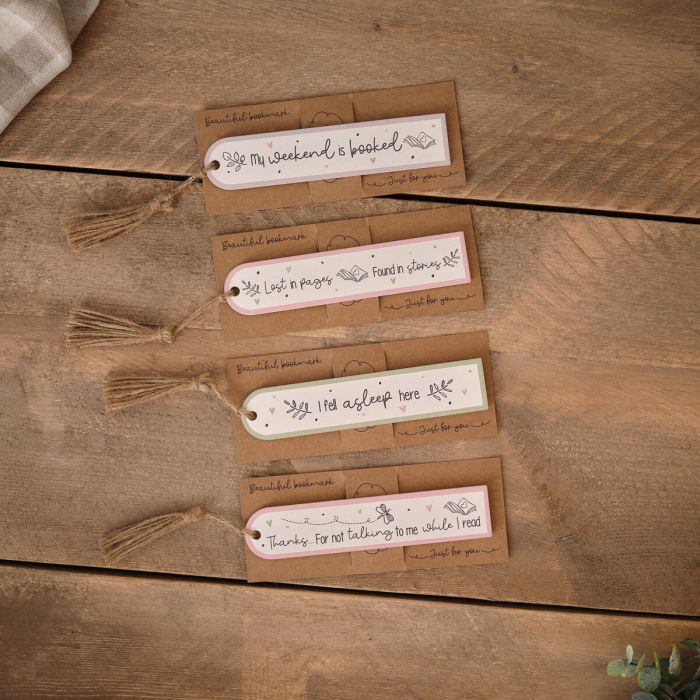 Beautiful bookmark
My weekend is booked
Just for you
Beautiful bookmark
Lost in pages Found in stories
Just for you
Beautiful bookmark
I fell asleep here
Just for you
Beautiful bookmark
Thanks... For not talking to me while I read
Just for you